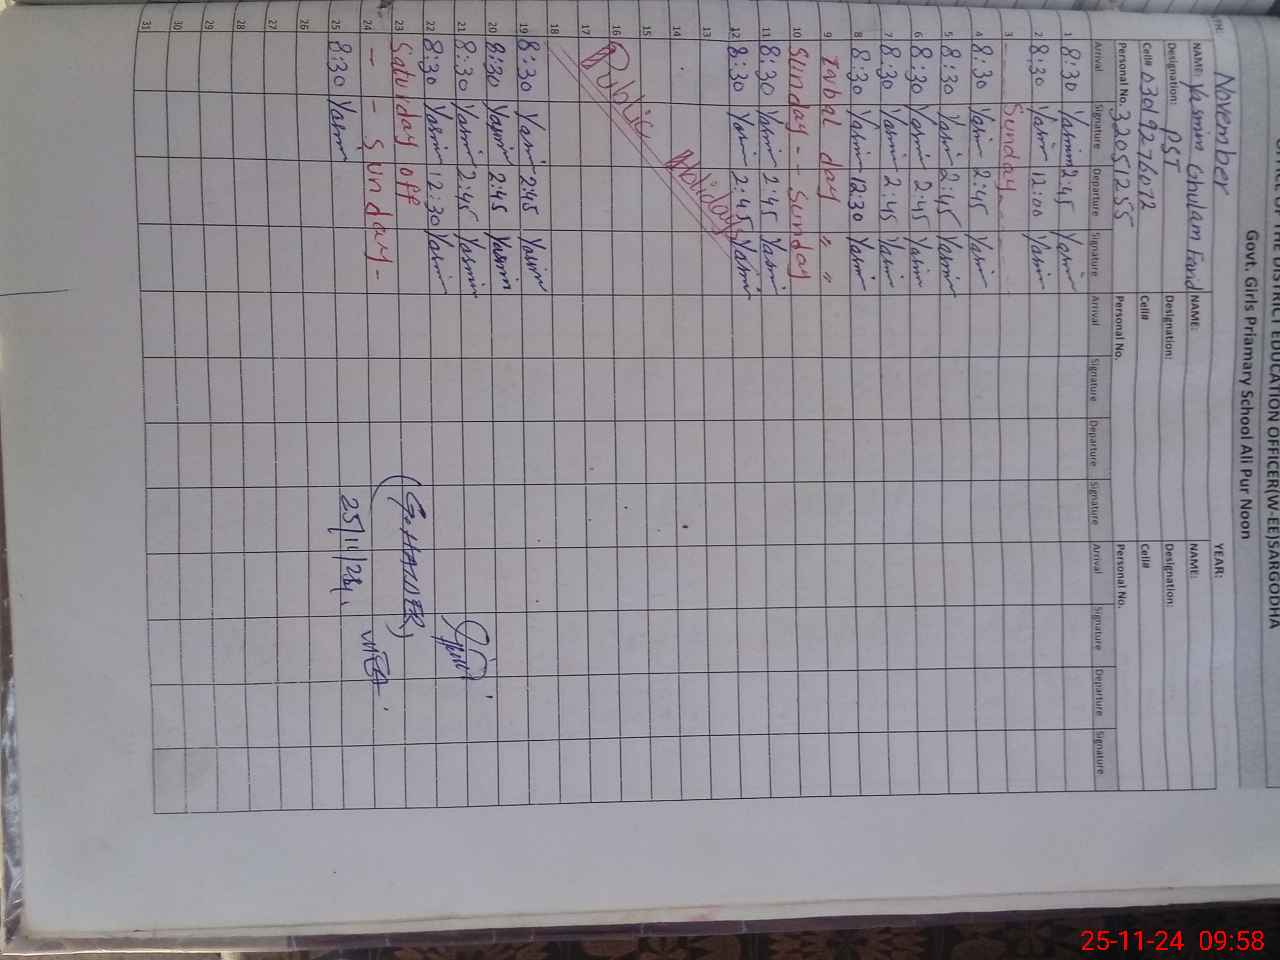 OFFICE OF THE DISTRICT EDUCATION OFFICER(W-EE)SARGODHA
Govt. Girls Priamary School Ali Pur Noon
TH: November YEAR:
NAME: Yasmin Ghulam Farid NAME: NAME:
Designation: PST Designation: Designation:
Cell# Cell# Cell#
Personal No. 32051255 Personal No. Personal No.
Arrival Signature Departure Signature Arrival Signature Departure Signature Arrival Signature Departure Signature
1 8:30 Yasmin 2:45 Yasmin
2 8:30 Yasmin 12:00 Yasmin
3 Sunday
4 8:30 Yasmin 2:45 Yasmin
5 8:30 Yasmin 2:45 Yasmin
6 8:30 Yasmin 2:45 Yasmin
7 8:30 Yasmin 2:45 Yasmin
8 8:30 Yasmin 12:30 Yasmin
9 Iqbal day " "
10 Sunday - - Sunday
11 8:30 Yasmin 2:45 Yasmin
12 8:30 Yasmin 2:45 Yasmin
13
14 Holiday
15
16 Public
17
18
19 8:30 Yasmin 2:45 Yasmin
20 8:30 Yasmin 2:45 Yasmin
21 8:30 Yasmin 2:45 Yasmin
22 8:30 Yasmin 12:30 Yasmin
23 Saturday off (G.HAIDER)
24 - - Sunday -
25 8:30 Yasmin 25/11/24
26
27
28
29
30
31
25-11-24 09:58